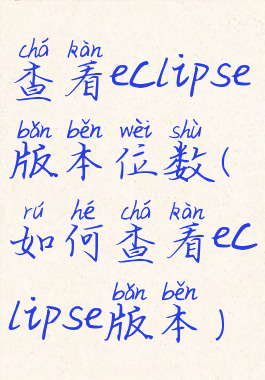 chá kàn
查看eclipse
bǎn běn wèi shù
版本位数(
rú hé chá kàn
如何查看ec
bǎn běn
lipse版本)